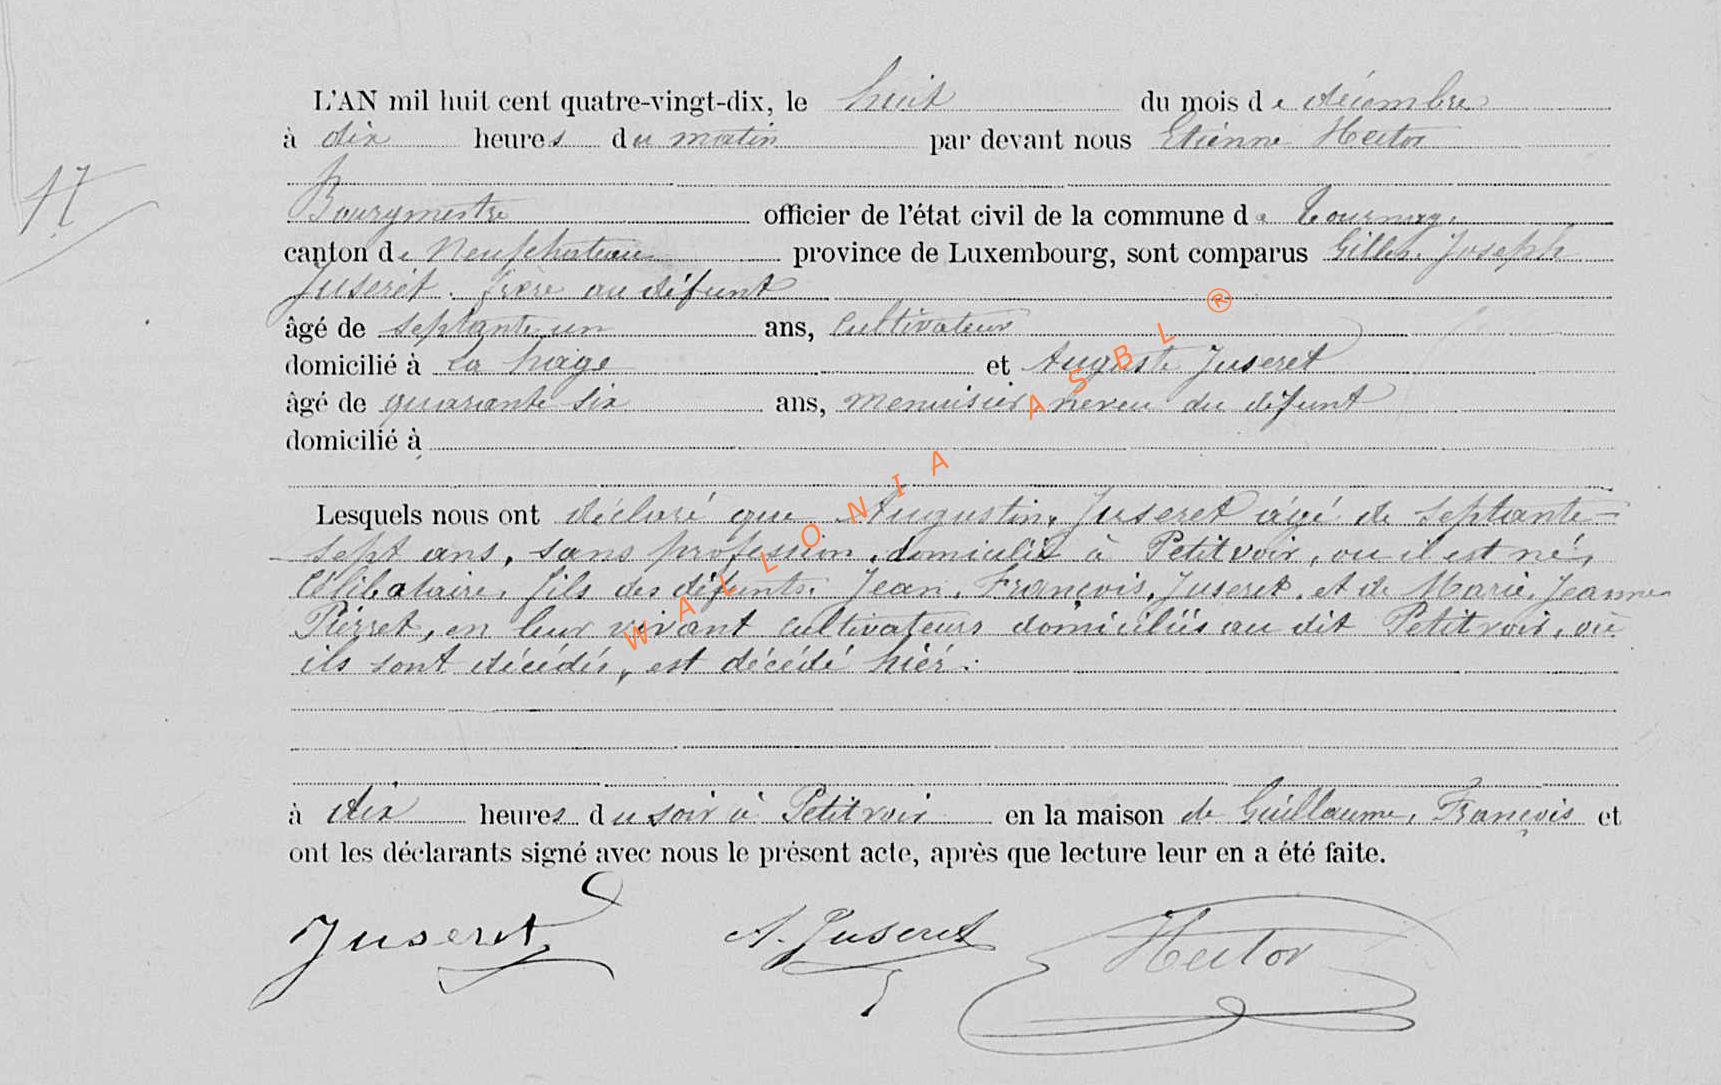 L'AN mil huit cent quatre-vingt-dix, le huit du mois de décembre
à dix heures du matin par devant nous Etienne Hector
17
Bourgmestre officier de l'état civil de la commune de Tournay,
canton de Neufchateau province de Luxembourg, sont comparus Gilles, Joseph
Juseret. frère au défunt
âgé de septante un ans, cultivateur
domicilié à la hage et Auguste Juseret
âgé de quarante six ans, menuisier neveu du défunt
domicilié à
Lesquels nous ont déclaré que Augustin, Juseret âgé de septante-
sept ans, sans profession, domicilié à Petitvoir, ou il est né,
Célibataire, fils des défunts, Jean, François, Juseret, et de Marie, Jeanne
Pierret, en leur vivant cultivateurs domiciliés au dit Petitvoir, où
ils sont décédés, est décédé hier.
à dix heures du soir à Petitvoir en la maison de Guillaume, François et
ont les déclarants signé avec nous le présent acte, après que lecture leur en a été faite.
Juseret A. Juseret Hector
WALLONIA ASBL ®